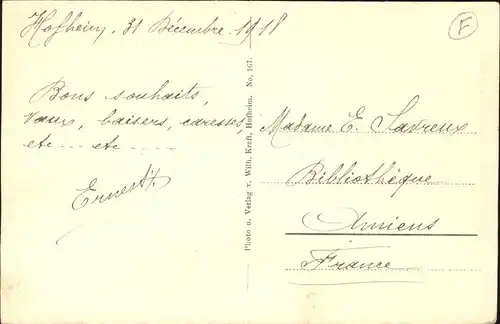 Hofheim, 31 Décembre 1918
Bons souhaits,
vœux, baisers, caresses,
etc ... etc ......
Ernest
Photo u. Verlag v. Wilh. Kraft, Hofheim. No. 167.
F
Madame E. Savreux
Bibliothèque
Amiens
France